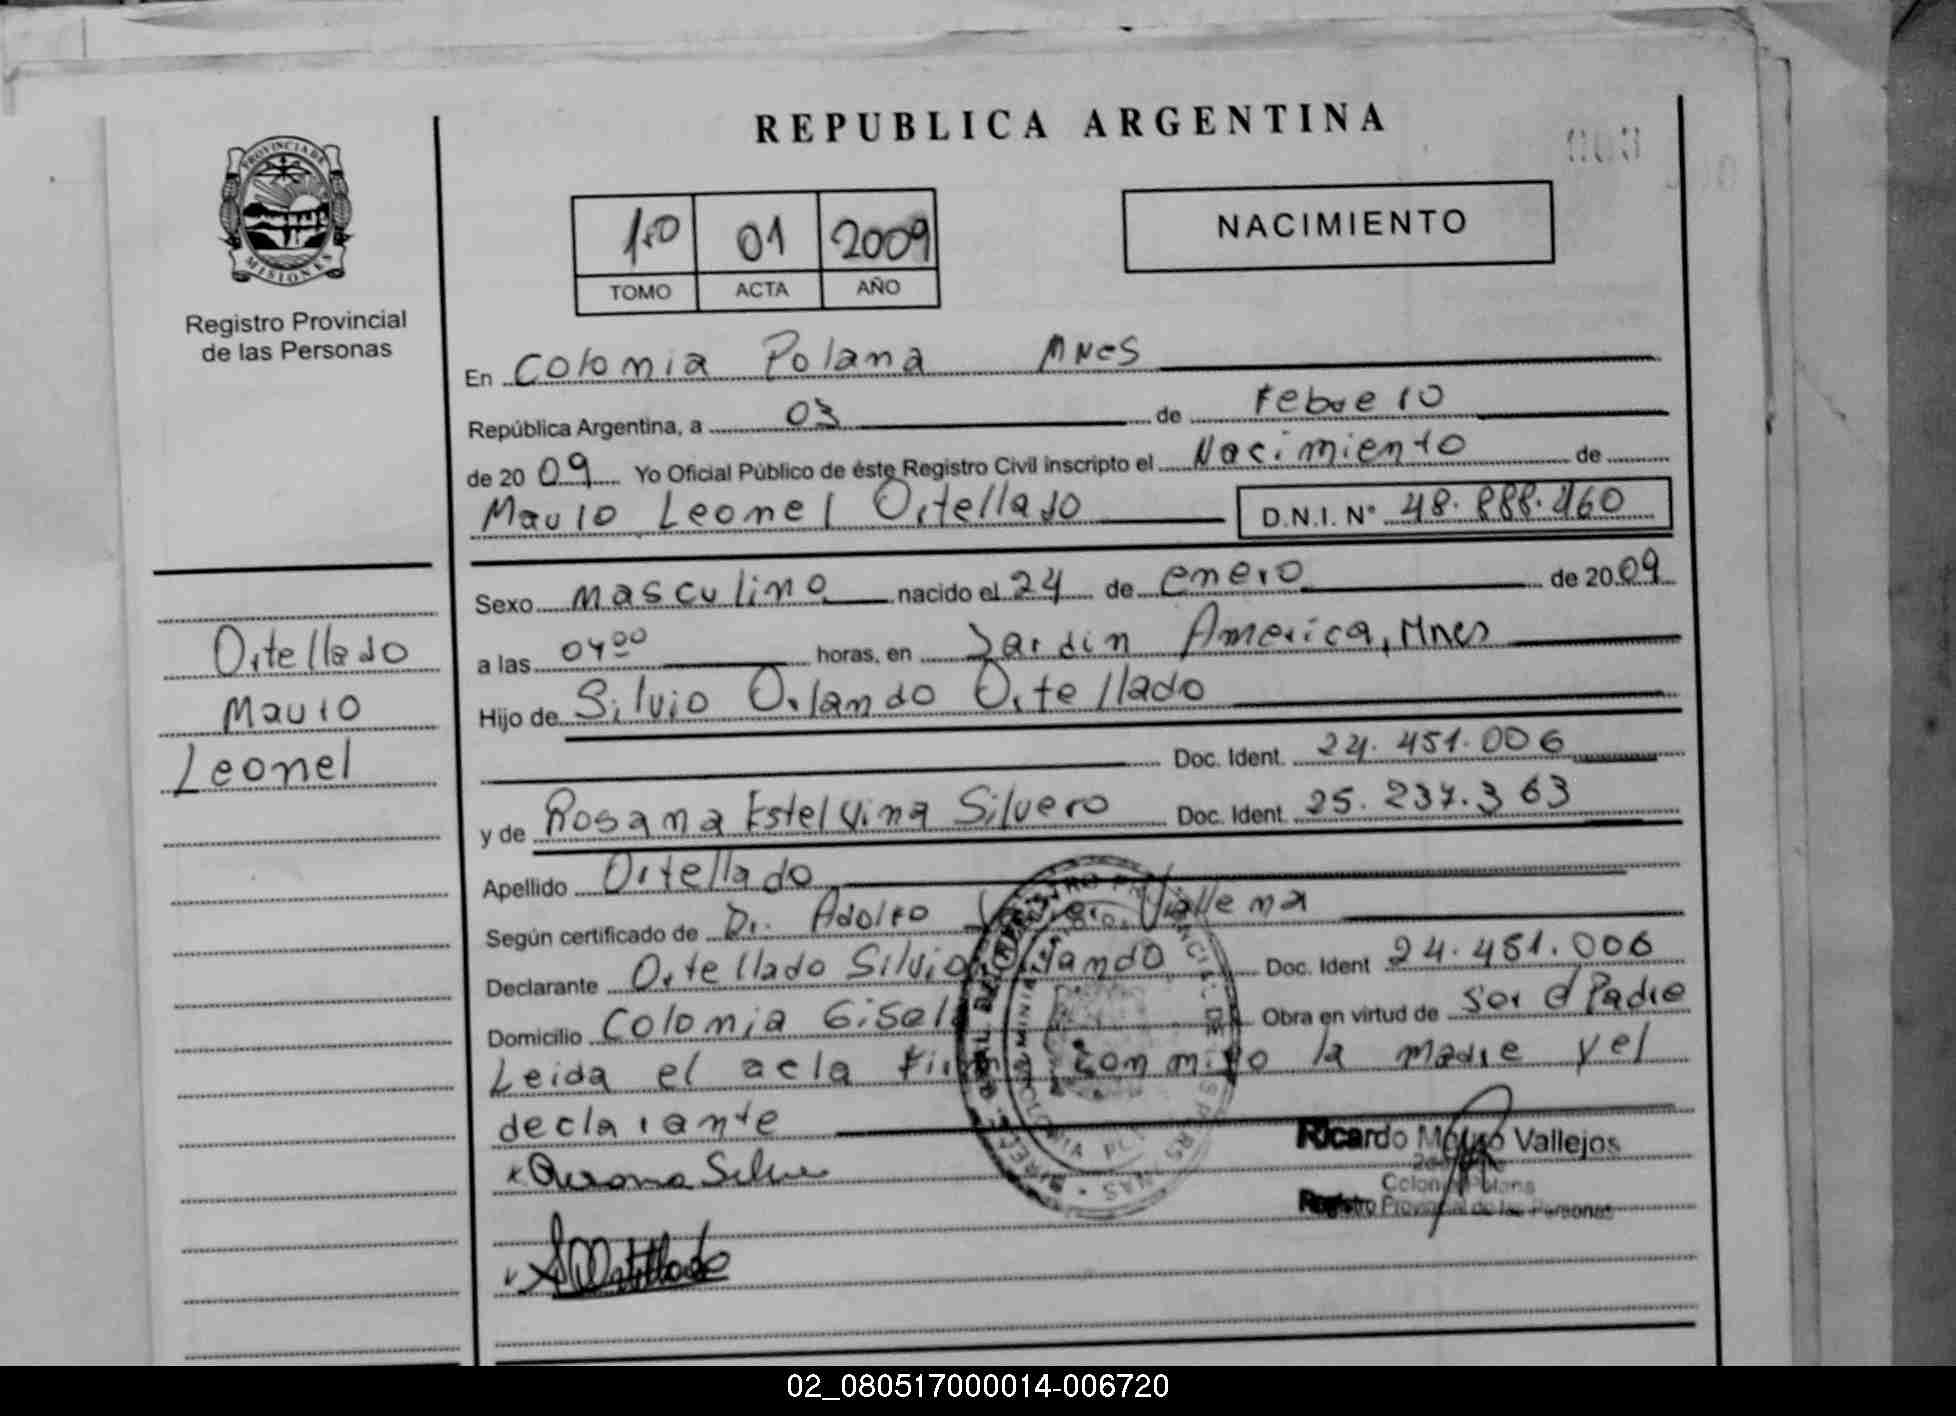 REPUBLICA ARGENTINA
003
PROVINCIA DE
MISIONES
Registro Provincial
de las Personas
1.0 01 2009
TOMO ACTA AÑO
NACIMIENTO
En Colonia Polana Mnes
República Argentina, a 03 de Febrero
de 2009 Yo Oficial Público de éste Registro Civil inscripto el Nacimiento de
Mauro Leonel Ortellado D.N.I. N° 48.888.460
Sexo masculino nacido el 24 de enero de 2009
a las 04 00 horas, en Jardin America, Mnes
Hijo de Silvio Orlando Ortellado
Doc. Ident. 24.451.006
y de Rosana Estelvina Silvero Doc. Ident 25.237.363
Apellido Ortellado
Según certificado de Dr. Adolfo Vallena
Declarante Ortellado Silvio Orlando Doc. Ident 24.451.006
Domicilio Colonia Gisela Obra en virtud de ser el Padre
Leida el acta firma conmigo la madre y el
declarante
Ortellado
Mauro
Leonel
Ricardo Vallejos
Colonia Polana
Registro Provincial de las Personas
02_080517000014-006720